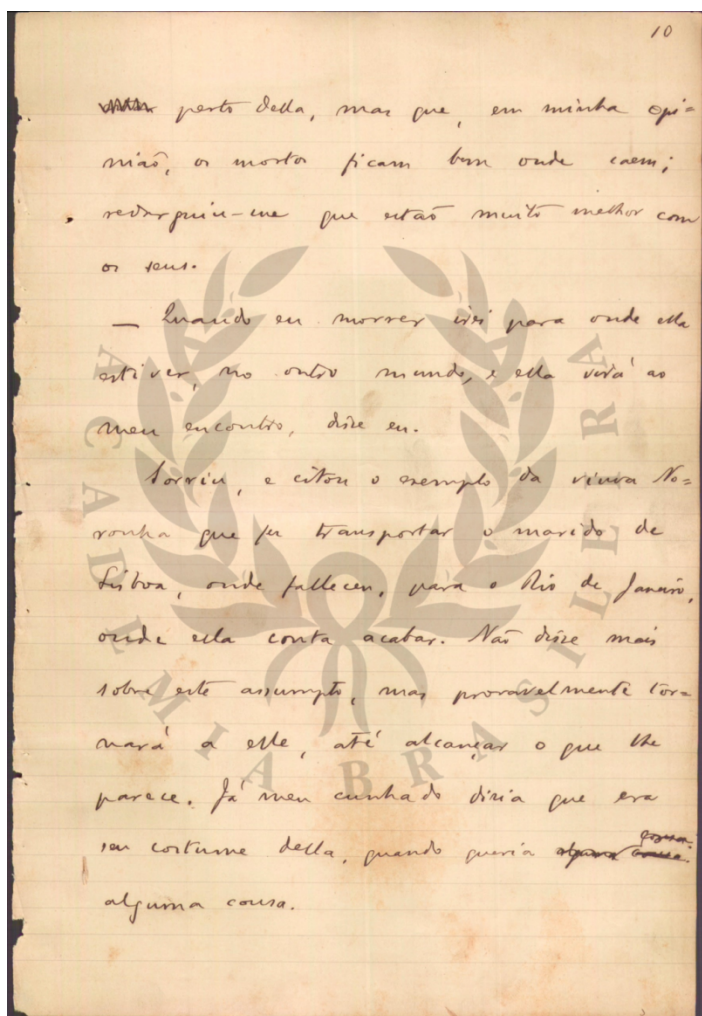 10
perto della, mas que, em minha opi=
nião, os mortos ficam bem onde caem;
redarguiu-me que estão muito melhor com
os seus.
— Quando eu morrer irei para onde ella
estiver, no outro mundo, e ella virá ao
meu encontro, disse eu.
Sorriu, e citou o exemplo da viuva No=
ronha que fez transportar o marido de
Lisboa, onde falleceu, para o Rio de Janeiro,
onde ella conta acabar. Não disse mais
sobre este assumpto, mas provavelmente tor=
nará a elle, até alcançar o que lhe
parece. Já meu cunhado dizia que era
seu costume della, quando queria alguma cousa. cousa.
alguma cousa.
ACADEMIA BRASILEIRA